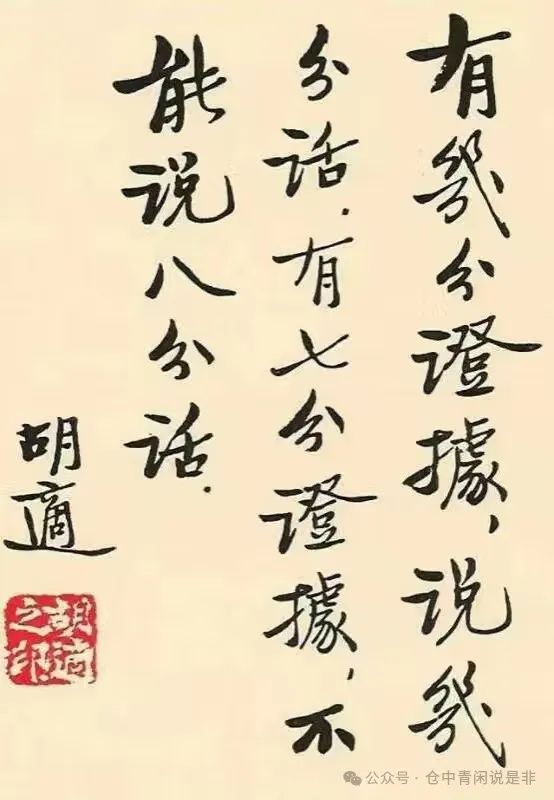 有幾分證據，说幾
分话．有七分證據，不
能说八分话．
胡適
胡適之印
公众号·仓中青闲说是非